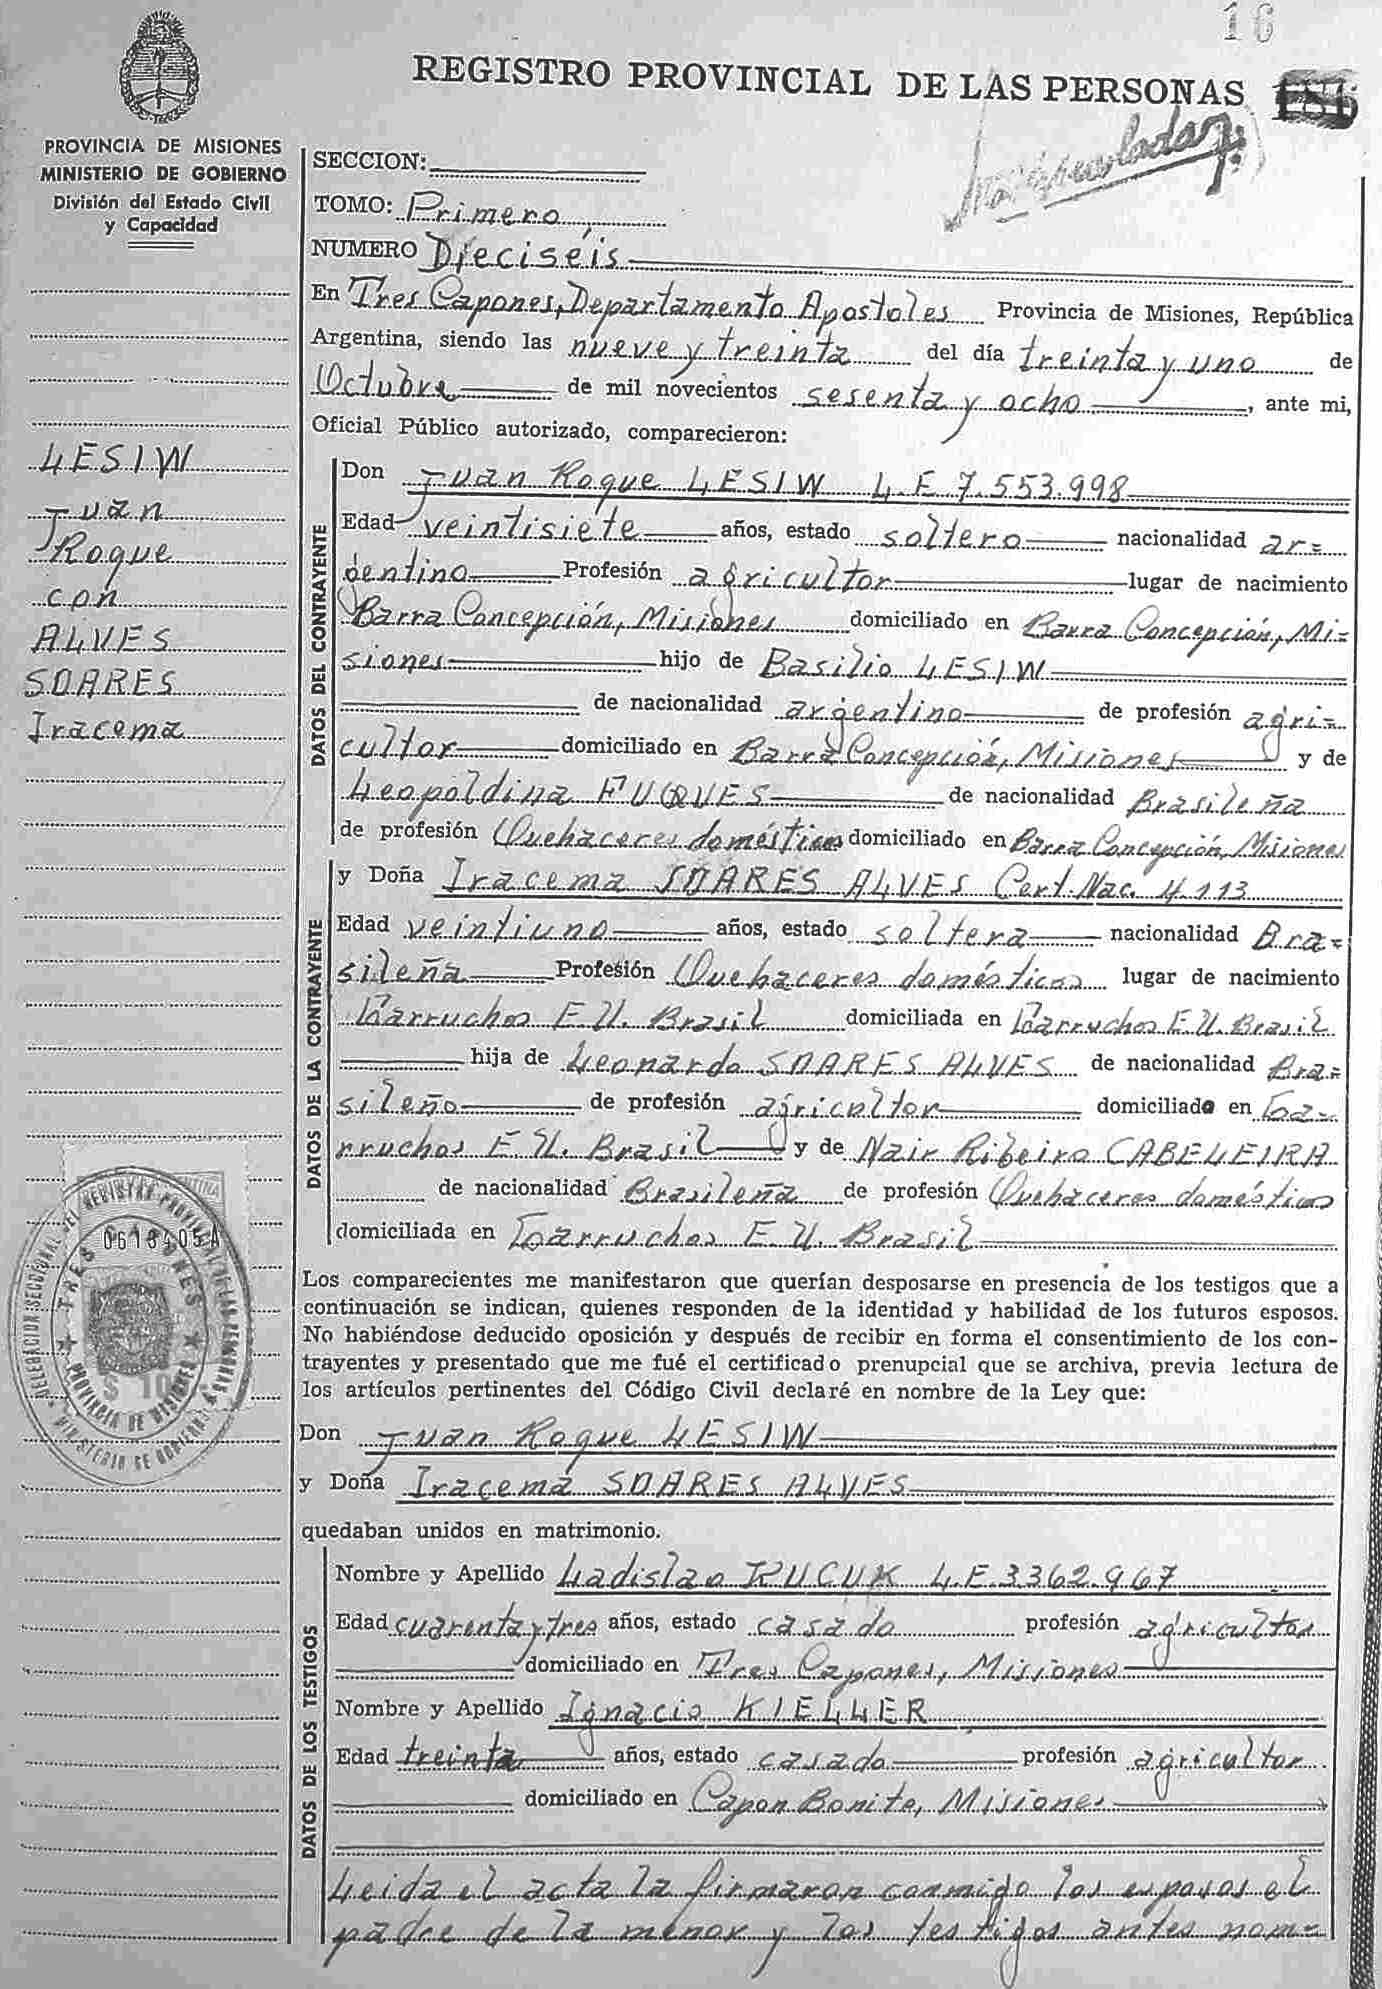 16
REGISTRO PROVINCIAL DE LAS PERSONAS
PROVINCIA DE MISIONES
MINISTERIO DE GOBIERNO
División del Estado Civil
y Capacidad
SECCION:
TOMO: Primero
NUMERO Dieciséis
En Tres Capones, Departamento Apostoles Provincia de Misiones, República
Argentina, siendo las nueve y treinta del día treinta y uno de
Octubre de mil novecientos sesenta y ocho, ante mi,
Oficial Público autorizado, comparecieron:
LESIW
Juan
Roque
con
ALVES
SOARES
Iracema
DATOS DEL CONTRAYENTE
Don Juan Roque LESIW L.E 7.553.998
Edad veintisiete años, estado soltero nacionalidad ar=
gentino Profesión agricultor lugar de nacimiento
Barra Concepción, Misiones domiciliado en Barra Concepción, Mi=
siones hijo de Basilio LESIW
de nacionalidad argentino de profesión agri=
cultor domiciliado en Barra Concepción, Misiones y de
Leopoldina de nacionalidad Brasileña
de profesión Quehaceres domésticos domiciliado en Barra Concepción, Misiones
DATOS DE LA CONTRAYENTE
y Doña Iracema SOARES ALVES Cert. Nac. 4.113
Edad veintiuno años, estado soltera nacionalidad Bra=
sileña Profesión Quehaceres domésticos lugar de nacimiento
Garruchos E.U. Brasil domiciliada en Garruchos E.U. Brasil
hija de Leonardo SOARES ALVES de nacionalidad Bra=
sileño de profesión agricultor domiciliado en Ga-
rruchos E.U. Brasil y de Nair Ribeiro CABELEIRA
de nacionalidad Brasileña de profesión Quehaceres domésticos
domiciliada en Garruchos E.U. Brasil
0613405A
DELEGACION SECCIONAL DEL REGISTRO PROVINCIAL DE LAS PERSONAS
MINISTERIO DE GOBIERNO
TRES CAPONES
PROVINCIA DE MISIONES
Los comparecientes me manifestaron que querían desposarse en presencia de los testigos que a
continuación se indican, quienes responden de la identidad y habilidad de los futuros esposos.
No habiéndose deducido oposición y después de recibir en forma el consentimiento de los con-
trayentes y presentado que me fué el certificado prenupcial que se archiva, previa lectura de
los artículos pertinentes del Código Civil declaré en nombre de la Ley que:
Don Juan Roque LESIW
y Doña Iracema SOARES ALVES
quedaban unidos en matrimonio.
DATOS DE LOS TESTIGOS
Nombre y Apellido Ladislao L.E. 3362.967
Edad cuarenta y tres años, estado casado profesión agricultor
domiciliado en Tres Capones, Misiones
Nombre y Apellido Ignacio KIELLER
Edad treinta años, estado casado profesión agricultor
domiciliado en Capon Bonito, Misiones
Leida el acta la firmaron conmigo los esposos el
padre de la menor y los testigos antes nom=